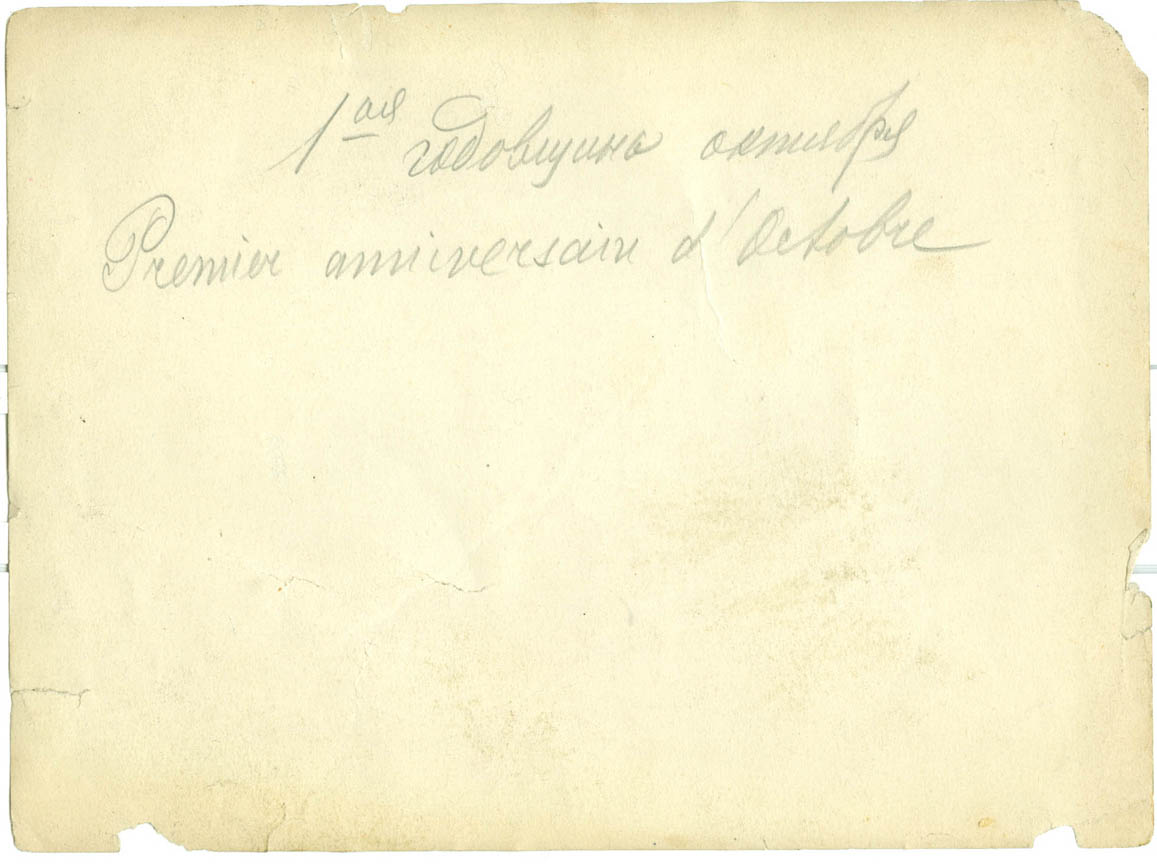 1ая годовщина октября
Premier anniversaire d'Octobre